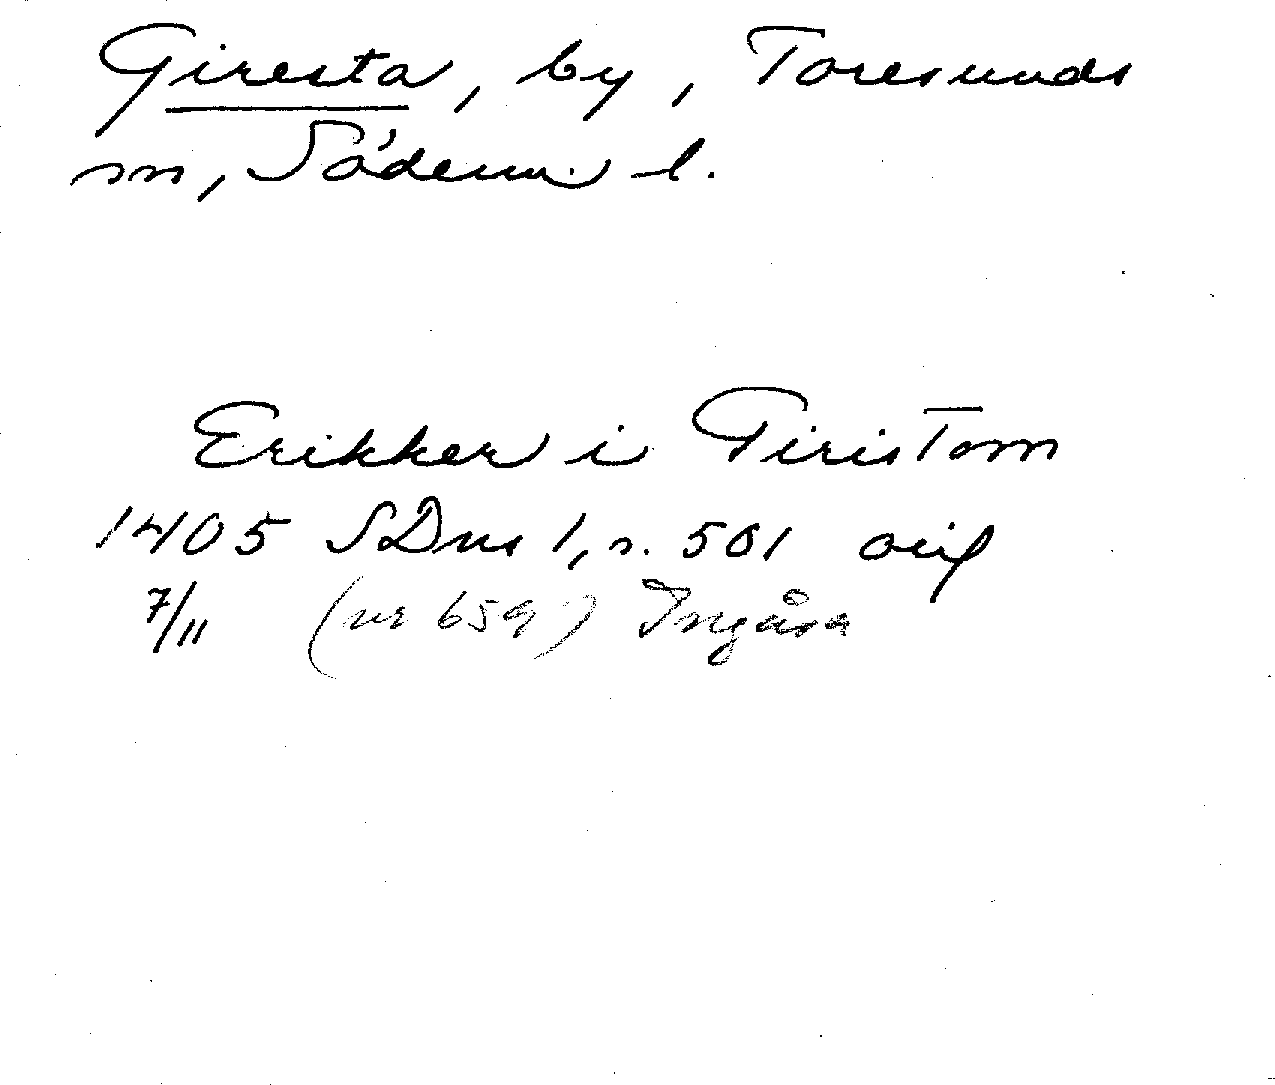 Giresta, by, Toresunds
sn, Söderm. l.
Erikker i Giristom
1405 SDns 1, s. 501 orig
7/11 (nr 659) Ingåsa